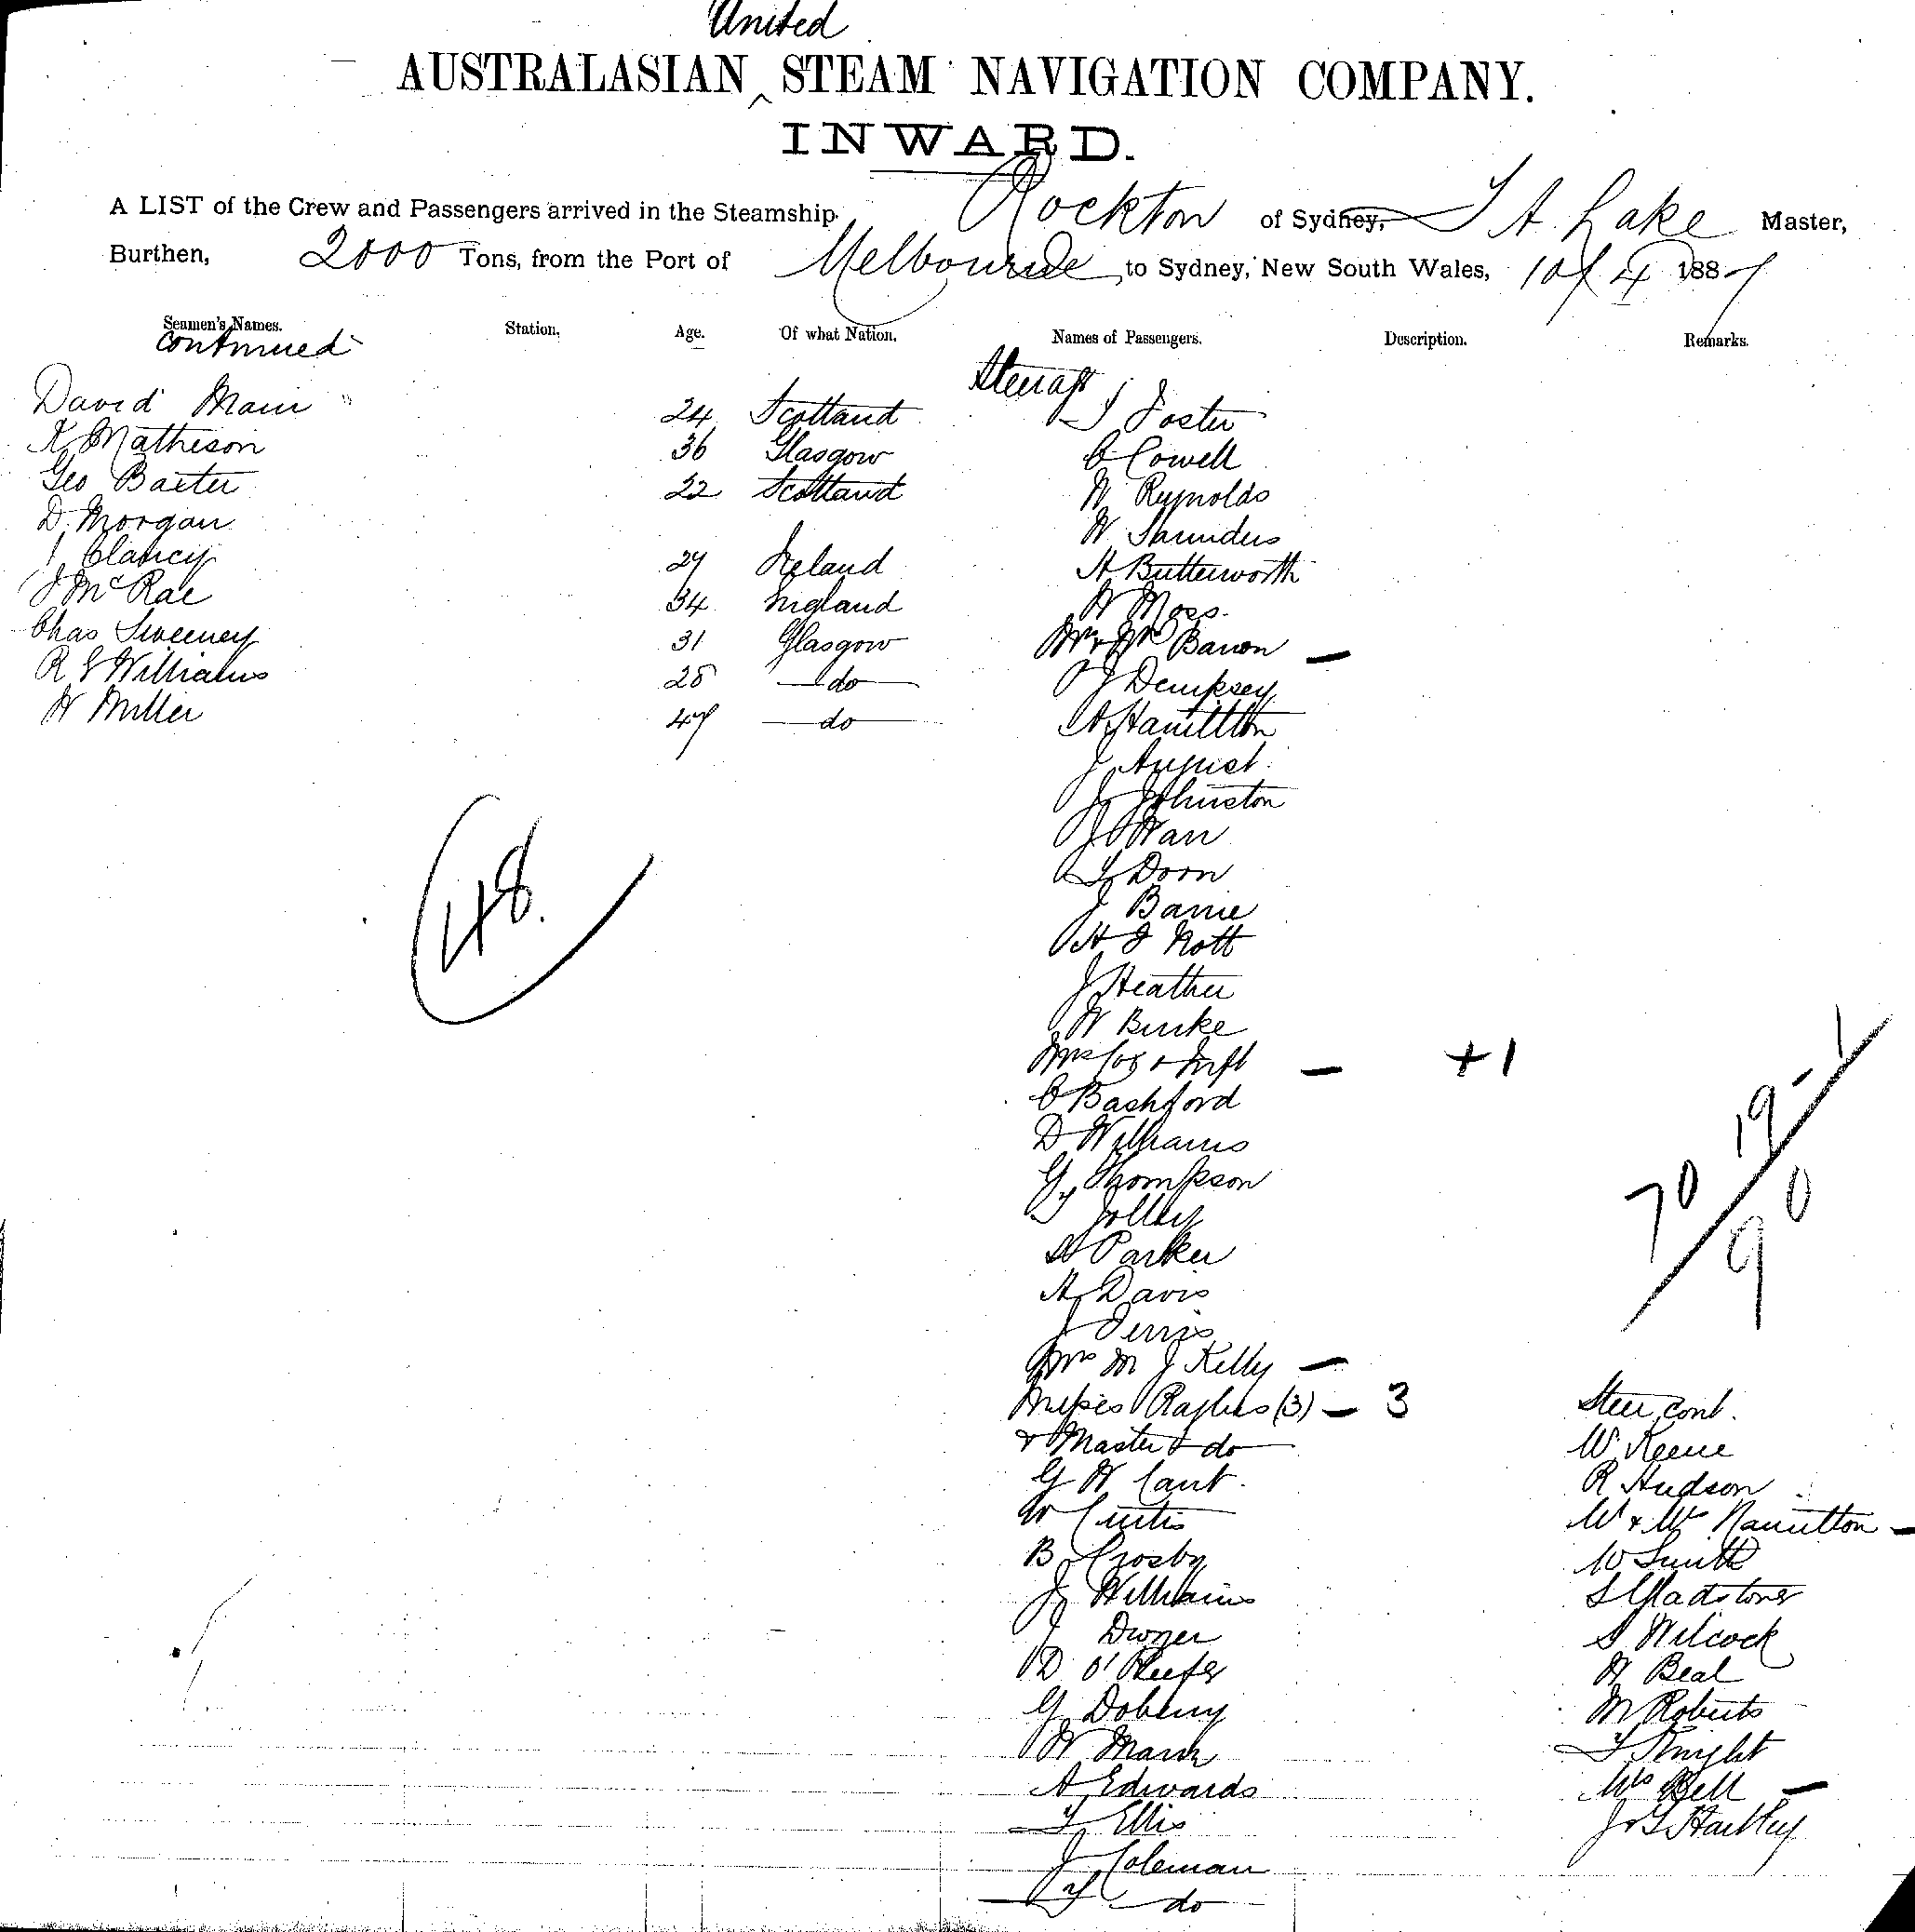 United
AUSTRALASIAN ^ STEAM NAVIGATION COMPANY.
INWARD.
A LIST of the Crew and Passengers arrived in the Steamship Rockton of Sydney, T A Lake Master,
Burthen, 2000 Tons, from the Port of Melbourne to Sydney, New South Wales, 10/4 1887
Seamen's Names. Station. Age. Of what Nation. Names of Passengers. Description. Remarks.
continued
David Main 24 Scotland
K Matheson 36 Glasgow
Geo Baxter 22 Scotland
D. Morgan
Clancy 27 Ireland
J McRae 34 England
Chas Sweeney 31 Glasgow
R S Williams 28 do
W Miller 47 do
48.
Steerage
J Foster
C Cowell
W Reynolds
W Saunders
H Butterworth
W Moss.
Mr & Mrs Barron —
J Dempsey
A Hamilton
J August
J Johnston
J Warr
T Doon
J Barrie
H J Nott
J Heather
W Burke
Mrs Cox & Inft — +1
C Bashford
D Williams
G Thompson
J Jolley
W Parker
A Davis
J Ferris
Mrs M J Kelly —
Misses (3) — 3
& Master do
G W Cant.
W Curtis
B Crosby
J Williams
J Dwyer
D O'Keefe
G Dobeny
W Mann
A Edwards
T Ellis
J Coleman
do
70 19 1
90
Steer cont.
W. Keene
R Hudson
Mr & Mrs Hamilton —
W Smith
S Gladstone
S Wilcock
W Beal
M Roberts
T Knight
Mrs Bell —
J S Hartley